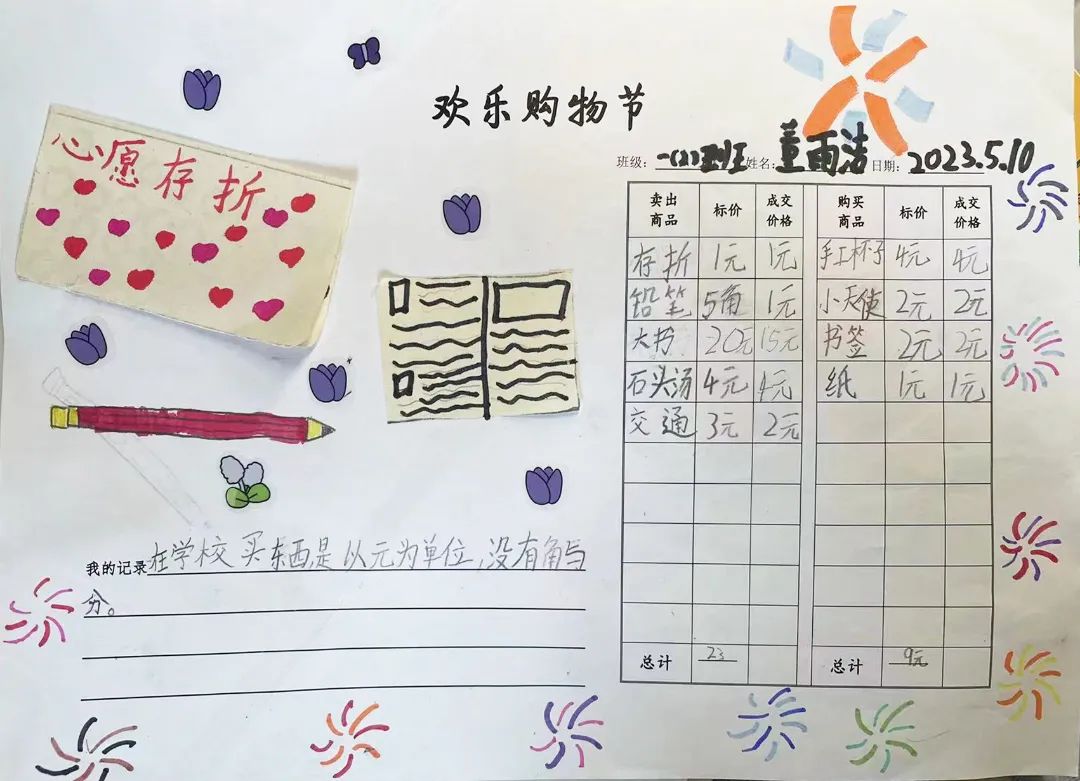 欢乐购物节
心愿存折
班级：一(2)班 姓名：董雨洁 日期：2023.5.10
卖出商品 标价 成交价格 购买商品 标价 成交价格
存折 1元 1元 手工杯子 4元 4元
铅笔 5角 1元 小天使 2元 2元
大书 20元 15元 书签 2元 2元
石头汤 4元 4元 纸 1元 1元
交通 3元 2元
总计 23 总计 9元
我的记录 在学校买东西是以元为单位，没有角与
分。